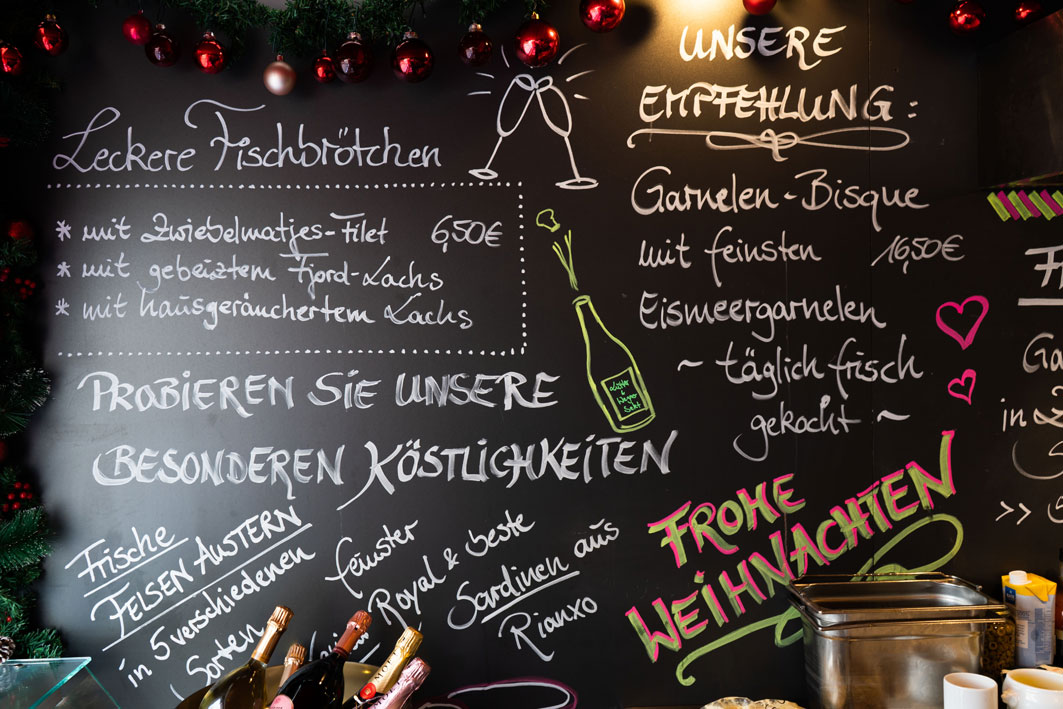 Leckere Fischbrötchen
* mit Zwiebelmatjes-Filet 6,50€
* mit gebeiztem Fjord-Lachs
* mit hausgeräuchertem Lachs
PROBIEREN SIE UNSERE
BESONDEREN KÖSTLICHKEITEN
Frische
FELSEN AUSTERN
in 5 verschiedenen
Sorten
feinster
Royal & beste
Sardinen aus
Rianxo
UNSERE
EMPFEHLUNG:
Garnelen-Bisque
mit feinsten 16,50€
Eismeergarnelen
~ täglich frisch
gekocht ~
FROHE
WEIHNACHTEN
Sekt
F
Ga
in
>>